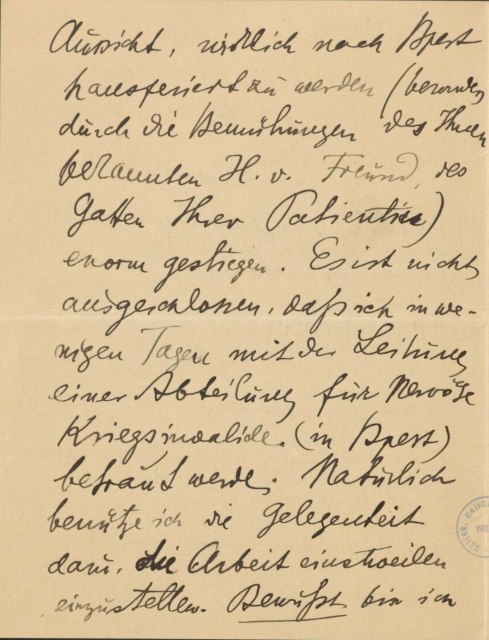 Aussicht, wirklich nach Bpest
transferiert zu werden (besonders
durch die Bemühungen des Ihnen
bekannten H. v. Freund, des
Gatten Ihrer Patientin)
enorm gestiegen. Es ist nicht
ausgeschlossen, daß ich in we-
nigen Tagen mit der Leitung
einer Abteilung für Nervöse
Kriegsinvalide (in Bpest)
betraut werde. Natürlich
benütze ich die Gelegenheit
dazu, die Arbeit einstweilen
einzustellen. Bewußt bin ich